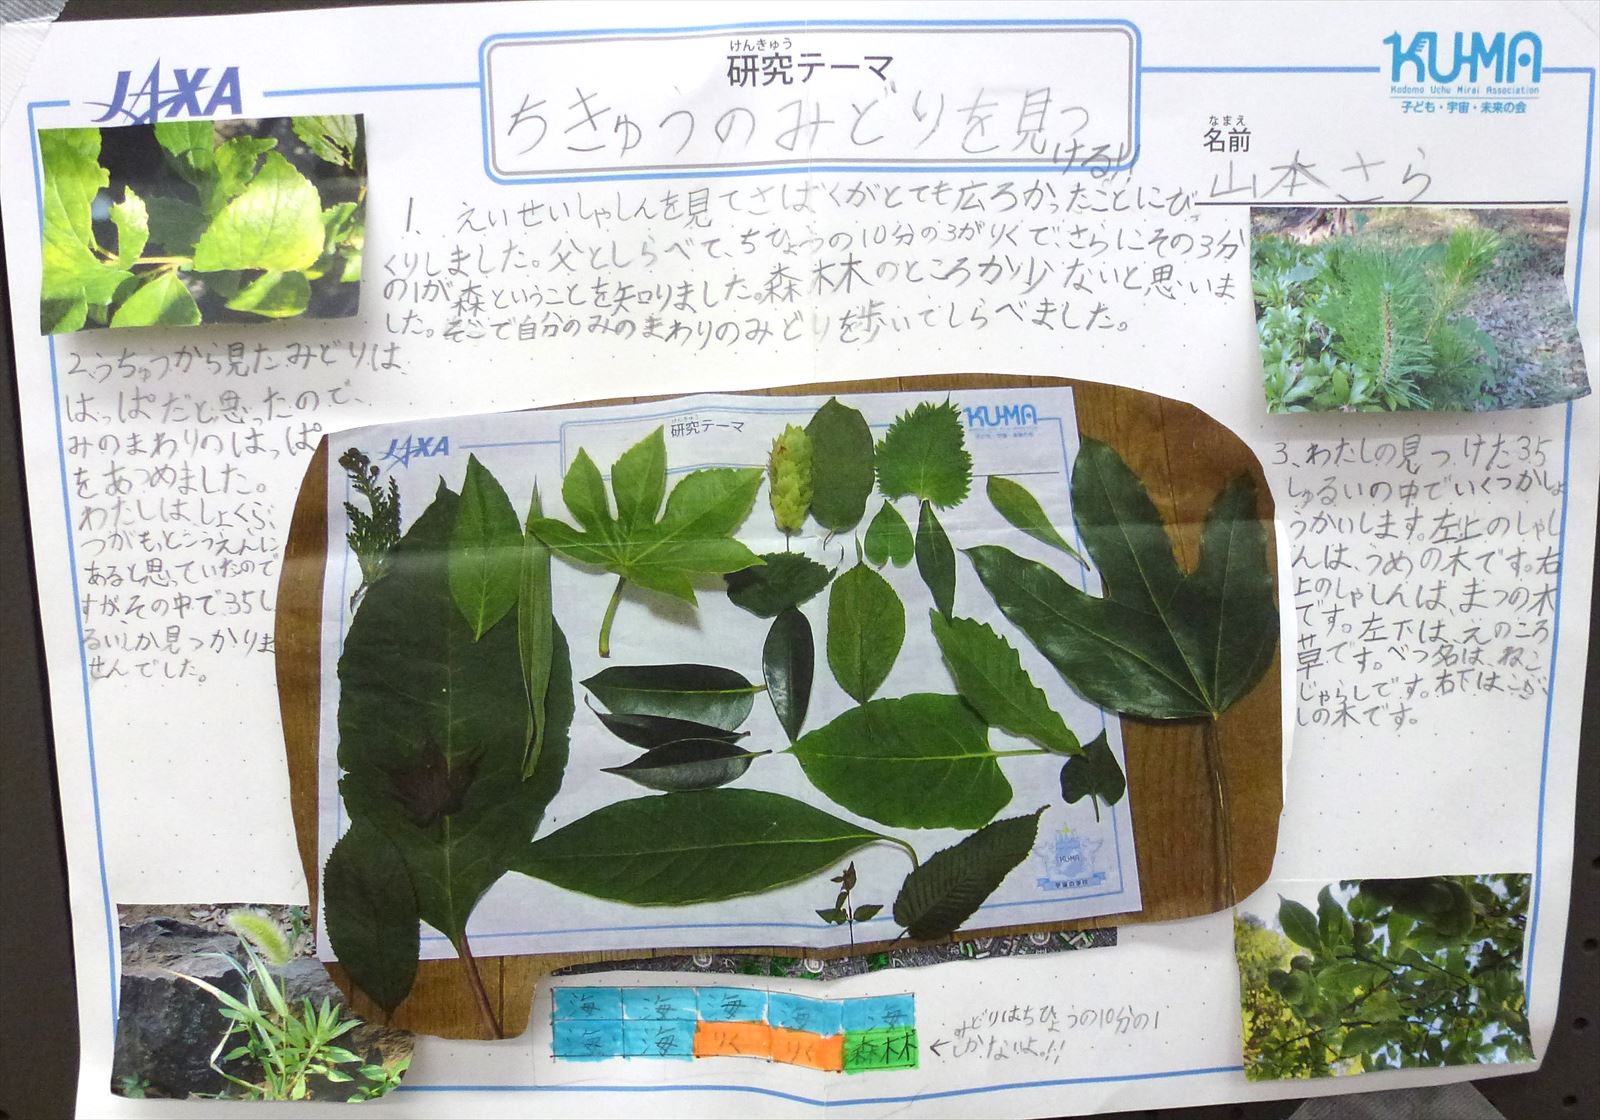 JAXA
けんきゅう
研究テーマ
ちきゅうのみどりを見つ
ける!!
KU-MA
Kodomo Uchu Mirai Association
子ども・宇宙・未来の会
なまえ
名前
山本さら
1. えいせいしゃしんを見てさばくがとても広ろかったことにびっ
くりしました。父としらべて、ちひょうの10分の3がりくで、さらにその3分
の1が森ということを知りました。森林のところが少ないと思いま
した。そこで自分のみのまわりのみどりを歩いてしらべました。
2.うちゅうから見たみどりは
はっぱだと思ったので、
みのまわりのはっぱ
をあつめました。
わたしは、しょくぶ
つがもっとこうえんに
あると思っていたので
すが、その中で35し
るいしか見つかりま
せんでした。
JAXA
けんきゅう
研究テーマ
KU-MA
子ども・宇宙・未来の会
KU-MA
3、わたしの見つけた35
しゅるいの中でいくつかしょ
うかいします。左上のしゃし
んは、うめの木です。右
上のしゃしんは、まつの木
です。左下は、えのころ
草です。べつ名は、ねこ
じゃらしです。右下は、こぶ
しの木です。
海 海 海 海 海
海 海 りく りく 森林
←みどりはちひょうの10分の1
しかないよ!!